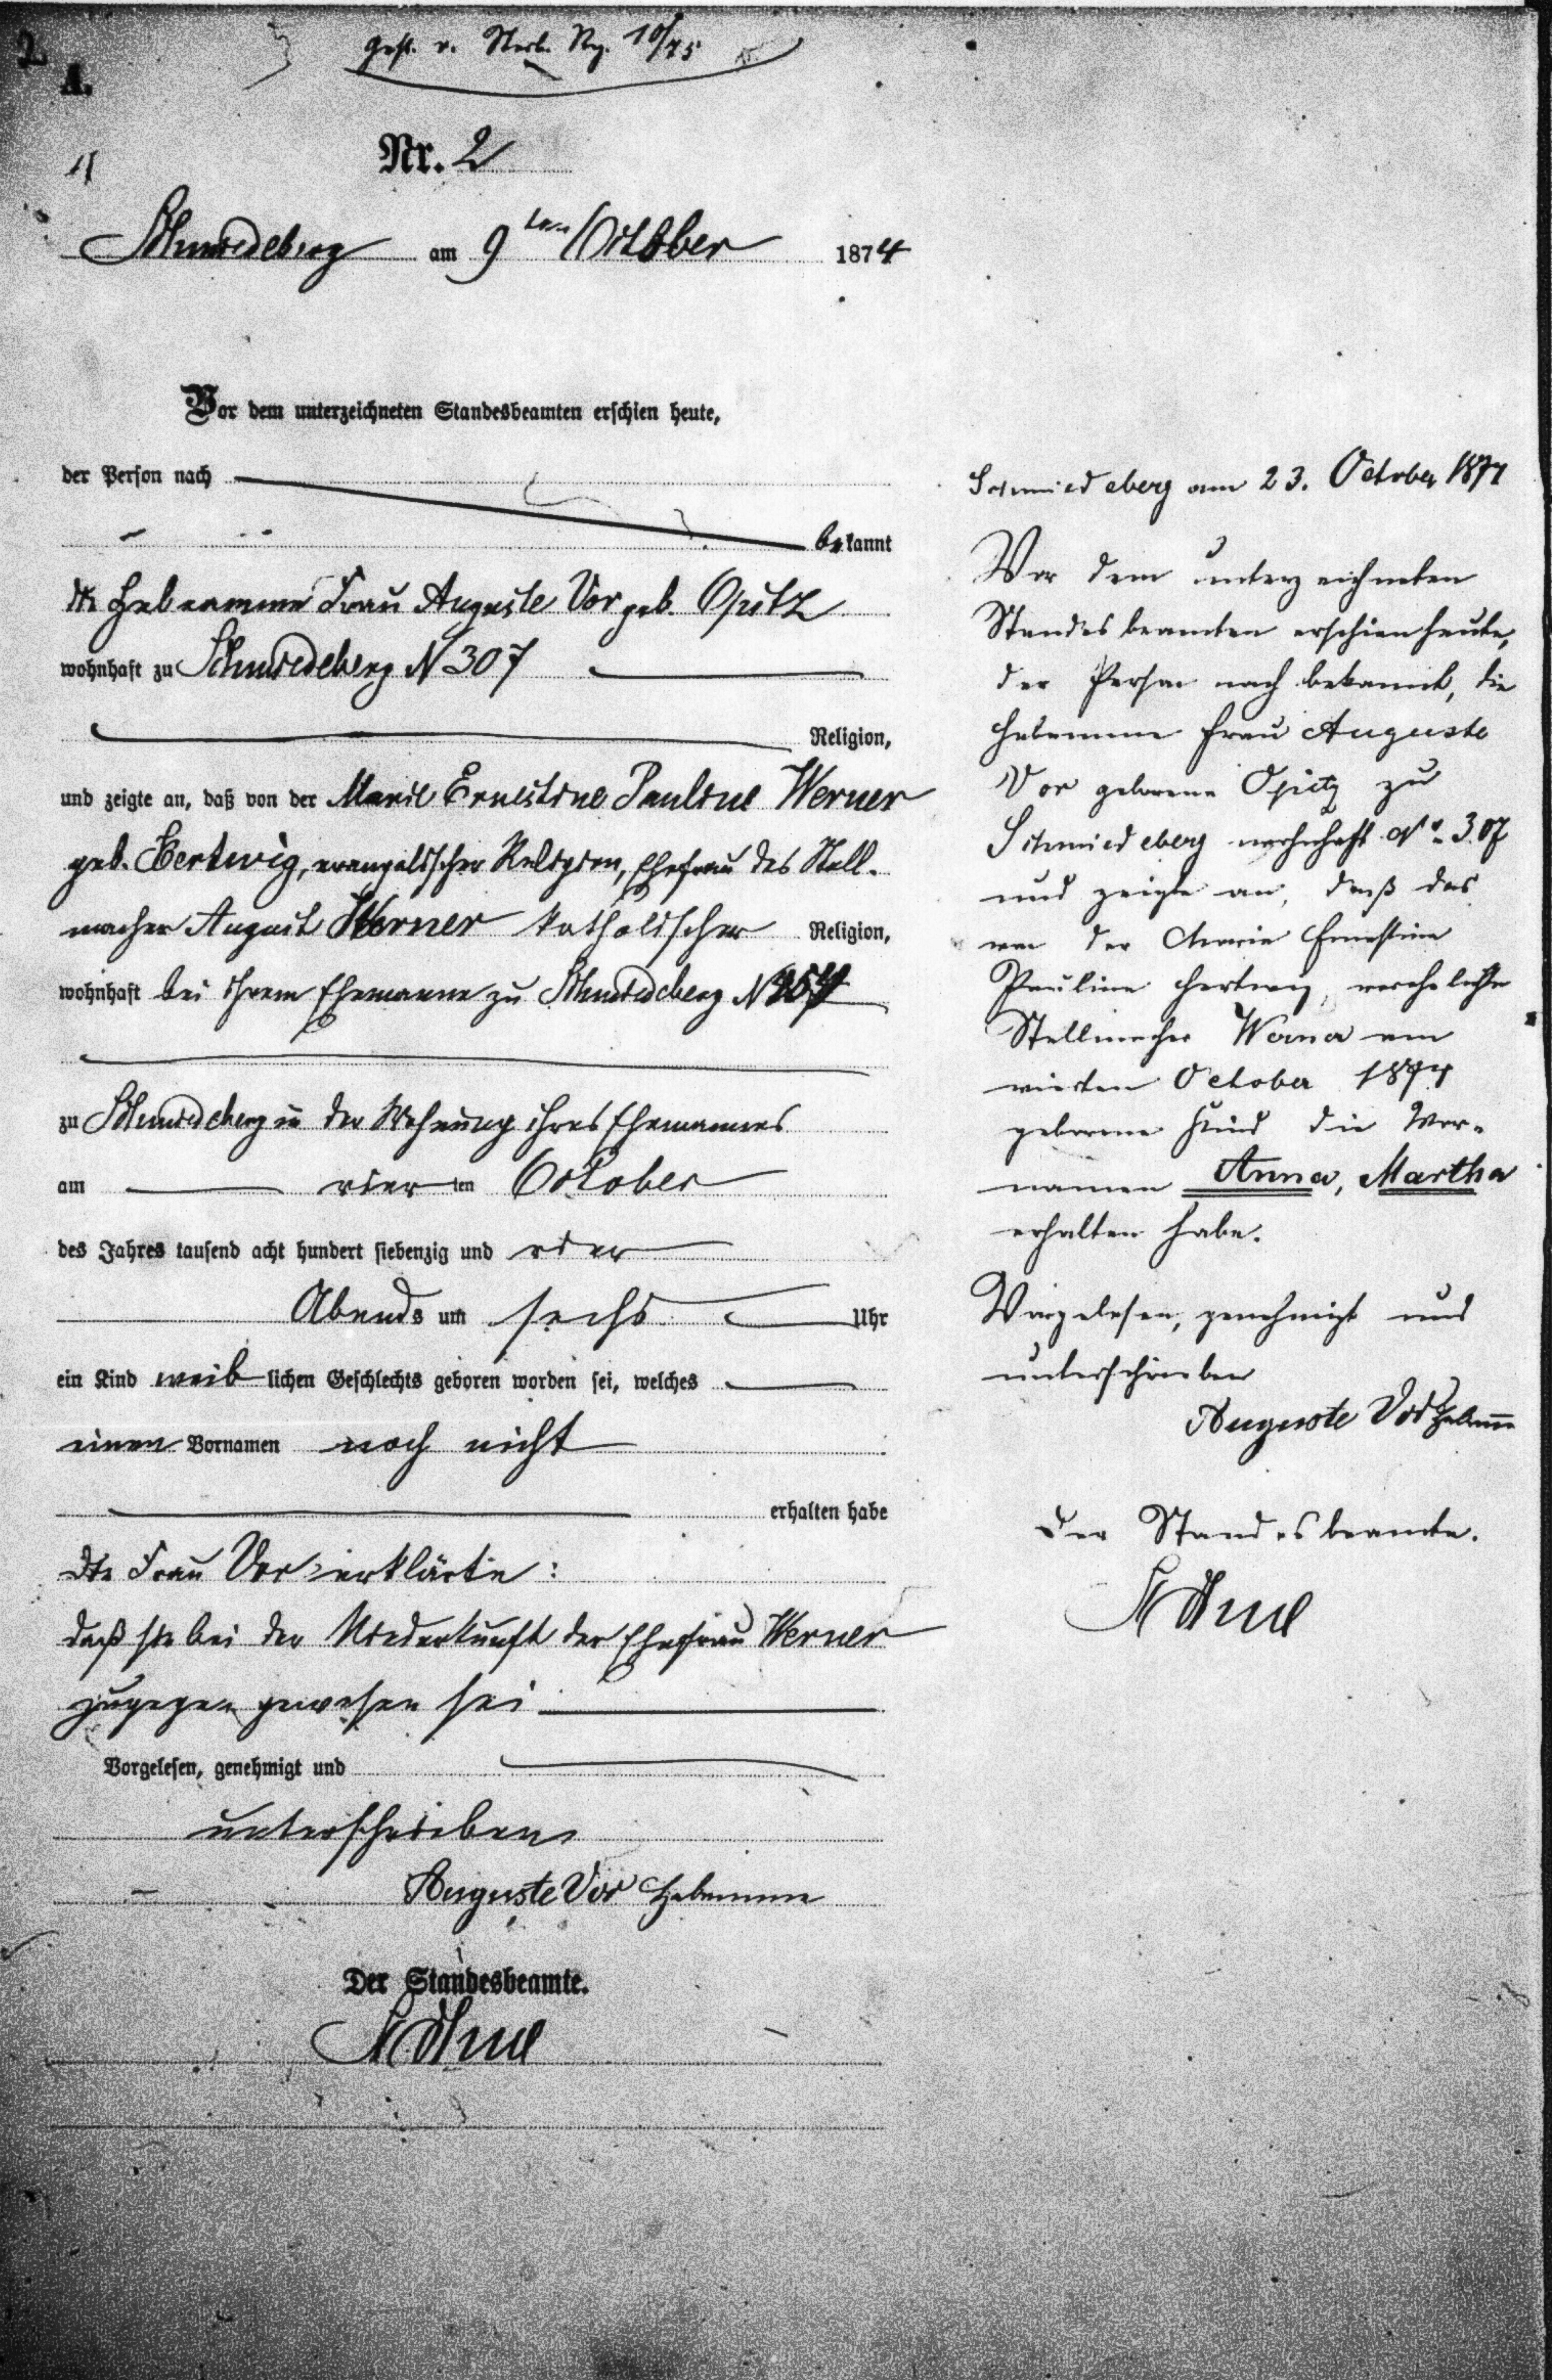 2
A.
gest. v. Sterb. Rg. 10/75
Nr. 2
Schmiedeberg am 9ten October 1874
Vor dem unterzeichneten Standesbeamten erschien heute,
der Person nach
bekannt
die Hebeamme Frau Auguste Vor geb. Opitz
wohnhaft zu Schmiedeberg N 307
Religion,
und zeigte an, daß von der Marie Ernestine Pauline Werner
geb. Hertwig, evangelischer Religion, Ehefrau des Stell-
macher August Werner katholischer Religion,
wohnhaft bei ihrem Ehemanne zu Schmiedeberg N
zu Schmiedeberg in der Wohnung ihres Ehemannes
am vier ten October
des Jahres tausend acht hundert siebenzig und vier
Abends um sechs Uhr
ein Kind weib lichen Geschlechts geboren worden sei, welches
einen Vornamen noch nicht
erhalten habe
Die Frau Vor erklärte:
daß sie bei der Niederkunft der Ehefrau Werner
zugegen gewesen sei
Vorgelesen, genehmigt und
unterschrieben
Auguste Vor Hebamme
Der Standesbeamte.
Schmiedeberg am 23. October 1874
Vor dem unterzeichneten
Standesbeamten erschien heute,
der Person nach bekannt, die
Hebamme Frau Auguste
Vor geborene Opitz zu
Schmiedeberg wohnhaft No 307
und zeigte an, daß das
von der Marie Ernestine
Pauline Hertwig, verehelichte
Stellmacher Werner am
vierten October 1874
geborene Kind die Vor-
namen Anna, Martha
erhalten habe.
Vorgelesen, genehmigt und
unterschrieben
Auguste Vor Hebamme
Der Standesbeamte.